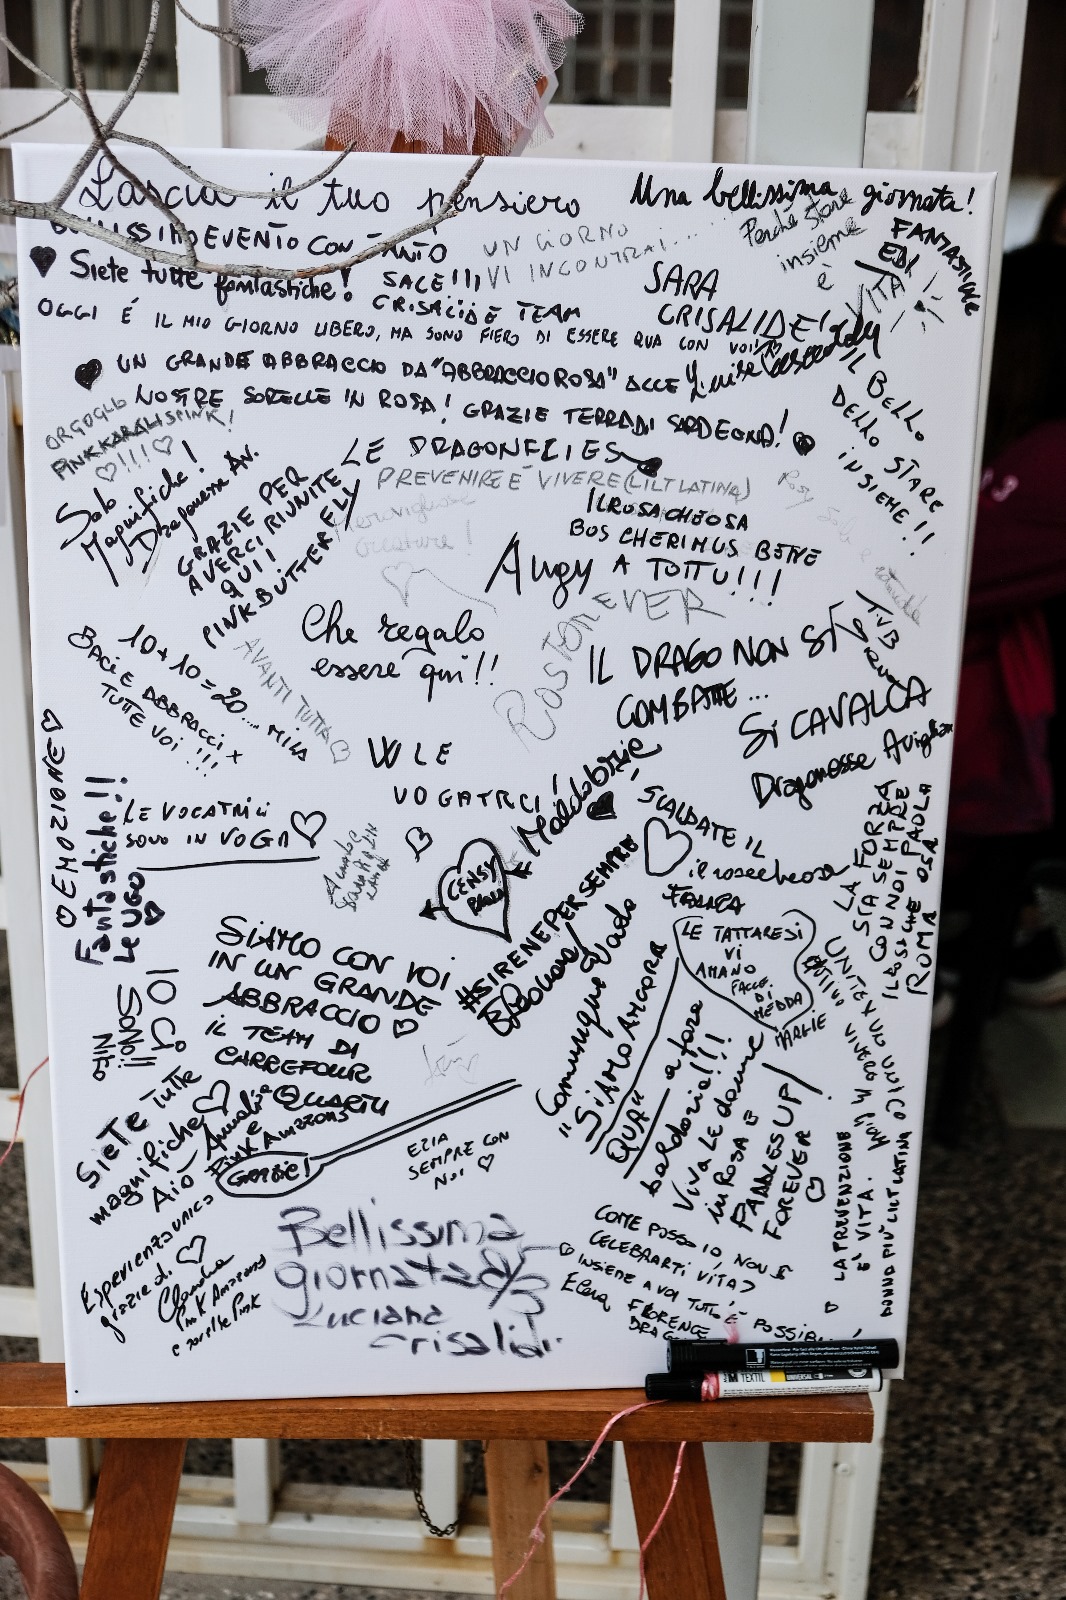 Lascia il tuo pensiero
Una bellissima giornata!
EVENTO CON TANTO
UN GIORNO
VI INCONTRAI....
Perché stare
insieme
è
VITA
FANTASTICHE
Siete tutte fantastiche!
CRISALIDE TEAM
SARA
CRISALIDE!
OGGI É IL MIO GIORNO LIBERO, MA SONO FIERO DI ESSERE QUA CON VOI!
UN GRANDE ABBRACCIO DA "ABBRACCIOROSA" ALLE
NOSTRE SORELLE IN ROSA! GRAZIE TERRA DI SARDEGNA!
LE DRAGONFLIES
IL BELLO
DELLO STARE
INSIEME!!
ORGOGLIO
PINKKARALISPINK!
!!!
Solo
Magnifiche!
Dragonesse Av.
GRAZIE PER
AVERCI RIUNITE
QUI!
PINK BUTTERFLY
PREVENIRE É VIVERE (LILT LATINA)
Meravigliose
creature!
ILROSACHEOSA
BOS CHERIMUS BENE
A TOTTU!!!
Augy
Che regalo
essere qui!!
FOREVER
10+10=20... MILA
BACI E ABBRACCI x
TUTTE VOI!!!
AVANTI TUTTA
IL DRAGO NON SI
COMBATTE...
SI CAVALCA
Dragonesse Avigliana
T.V.B
W LE
VOGATRICI!
EMOZIONE
Fantastiche!!
Le UGO
LE VOGATRICI
SONO IN VOGA
Maldobrie
SCALDATE IL
ilrosacheosa
CENSY
#SIRENEPERSEMPRE
LE TATTARESI
VI
AMANO
FACCE
DI
MEDDA
MARGIE
LA FORZA
SIA SEMPRE
CON NOI
PAOLA
ILROSACHEOSA
ROMA
SIAMO CON VOI
IN UN GRANDE
ABBRACCIO
IL TEAM DI
CARREFOUR
QUARTU
IO CI
SONO!!
Comunque vada
"SIAMO ANCORA
QUA"
a fora
baldoria!!!
VIVA LE donne
in ROSA
PADDLES UP/
FOREVER
SIETE TUTTE
magnifiche
Aiò
PINK AMAZONS
Grazie!
EZIA
SEMPRE CON
NOI
Esperienza unica
grazie di
Claudia
PINK AMAZONS
e sorelle Pink
Bellissima
giornata
Luciana
Crisalidi
COME POSSO IO, NON
CELEBRARTI VITA?
INSIEME A VOI TUTTO È POSSIBILE
Elena
FLORENCE
LA PREVENZIONE
È VITA.
DONNA PIÙ LILT LATINA
TEXTIL